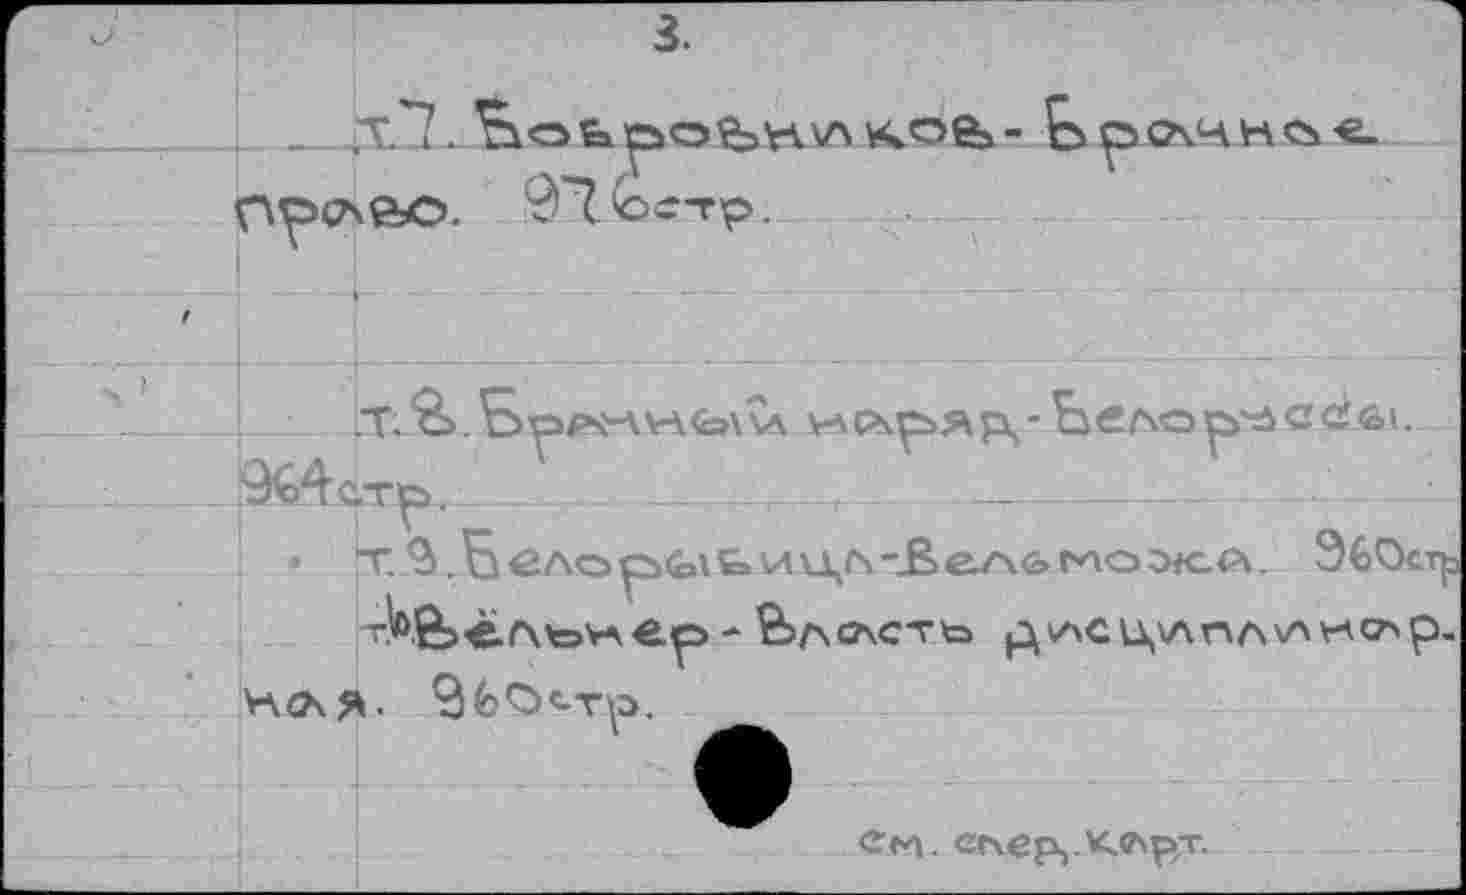 3.
т.7. Бобровников- Брачное
право. 976стр.
т.8. Брачный наряд - Белорассы.
964стр.
т.9. Белорыбица-Вельможа. 960стр
т.10Вёльнер - Власть дисциплинар-
ная. 960стр.
См. след. карт.